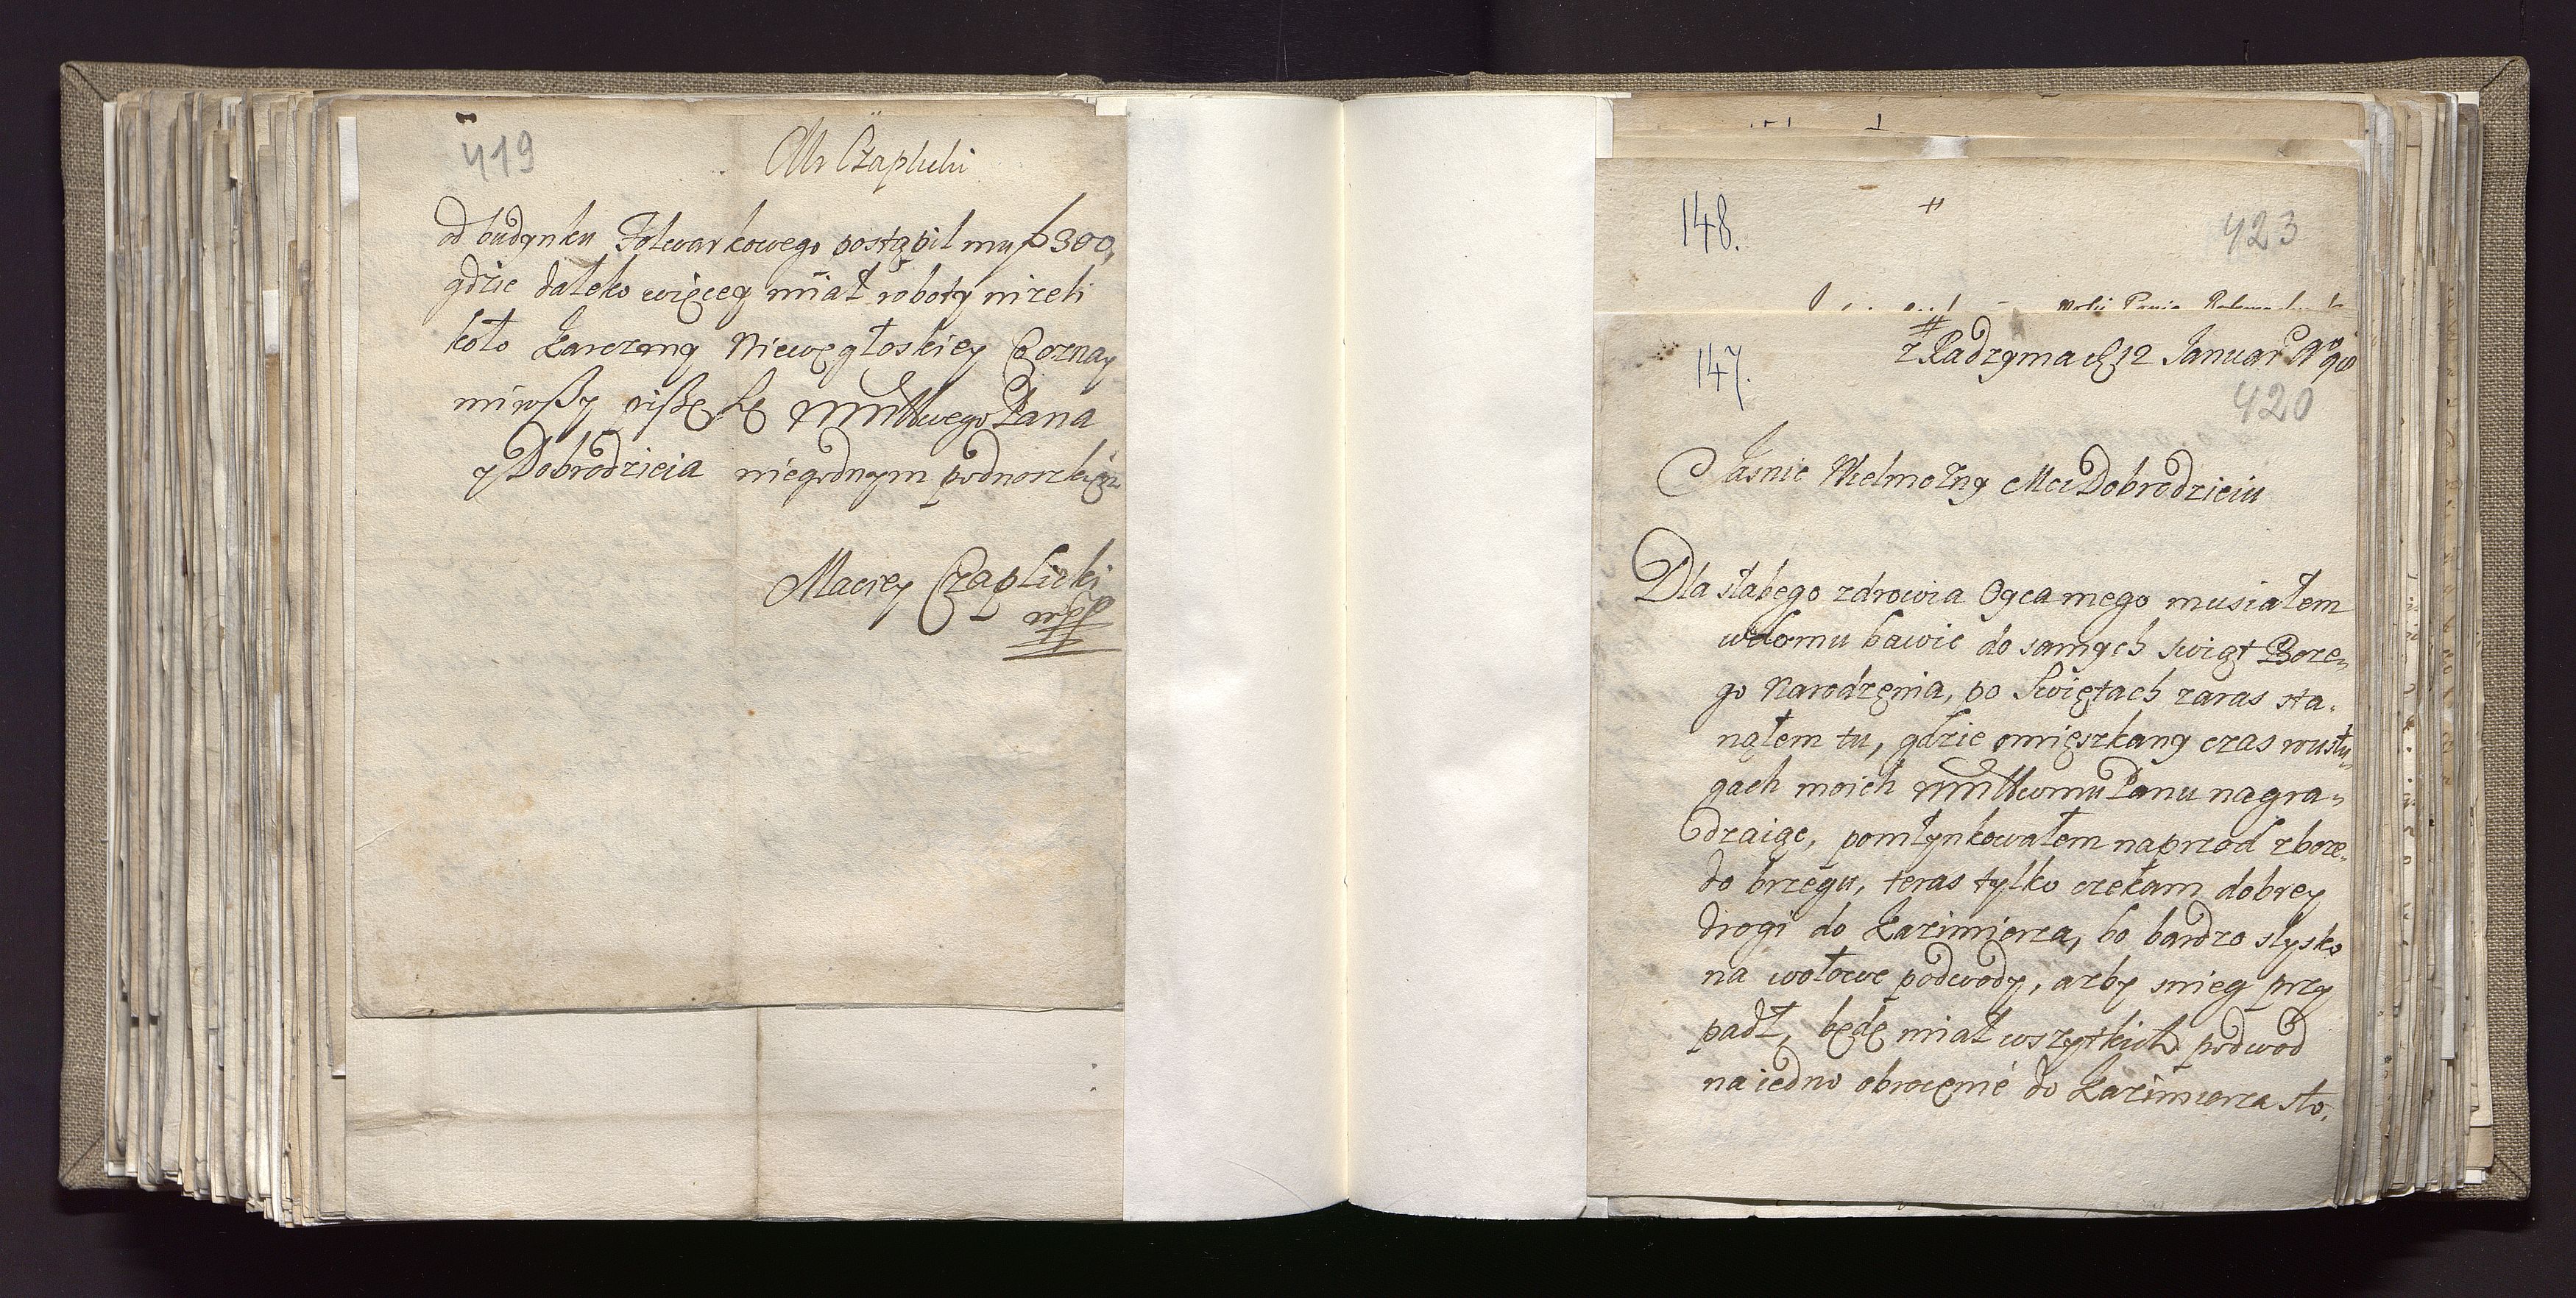 419
Mr Czaplicki
od budynku Folwarkowego postąpił mu f 300,
gdzie daleko więcey miał roboty nizeli
koło Karczmy Niewęgłoskiey
piszę WMMMwego Pana
y Dobrodzieia niegodnym podnoszkiem
Maciey Czaplicki
mpp
148.
423
#
z Radzynia d 12 Januar Aº 98
147.
420
Jasnie Wielmozny Mci Dobrodzieiu
Dla słabego zdrowia Oyca mego musiałem
wdomu bawic do samych swiąt Boze„
go Narodzęnia, po Swiętach zaras sta„
nąłem tu, gdzie omięszkany czas wusłu„
gach moich WMMMwemu Panu nagra„
dzaiąc, pomłynkowałem naprzod zboze„
do brzegu, teras tylko czekam dobrey
drogi do Kazimierza, bo bardzo slysko
na wołowe podwody, azby snieg przy
padł, będę miał wszytkich podwod
na iedno obrocęnie do Kazimierza sto„